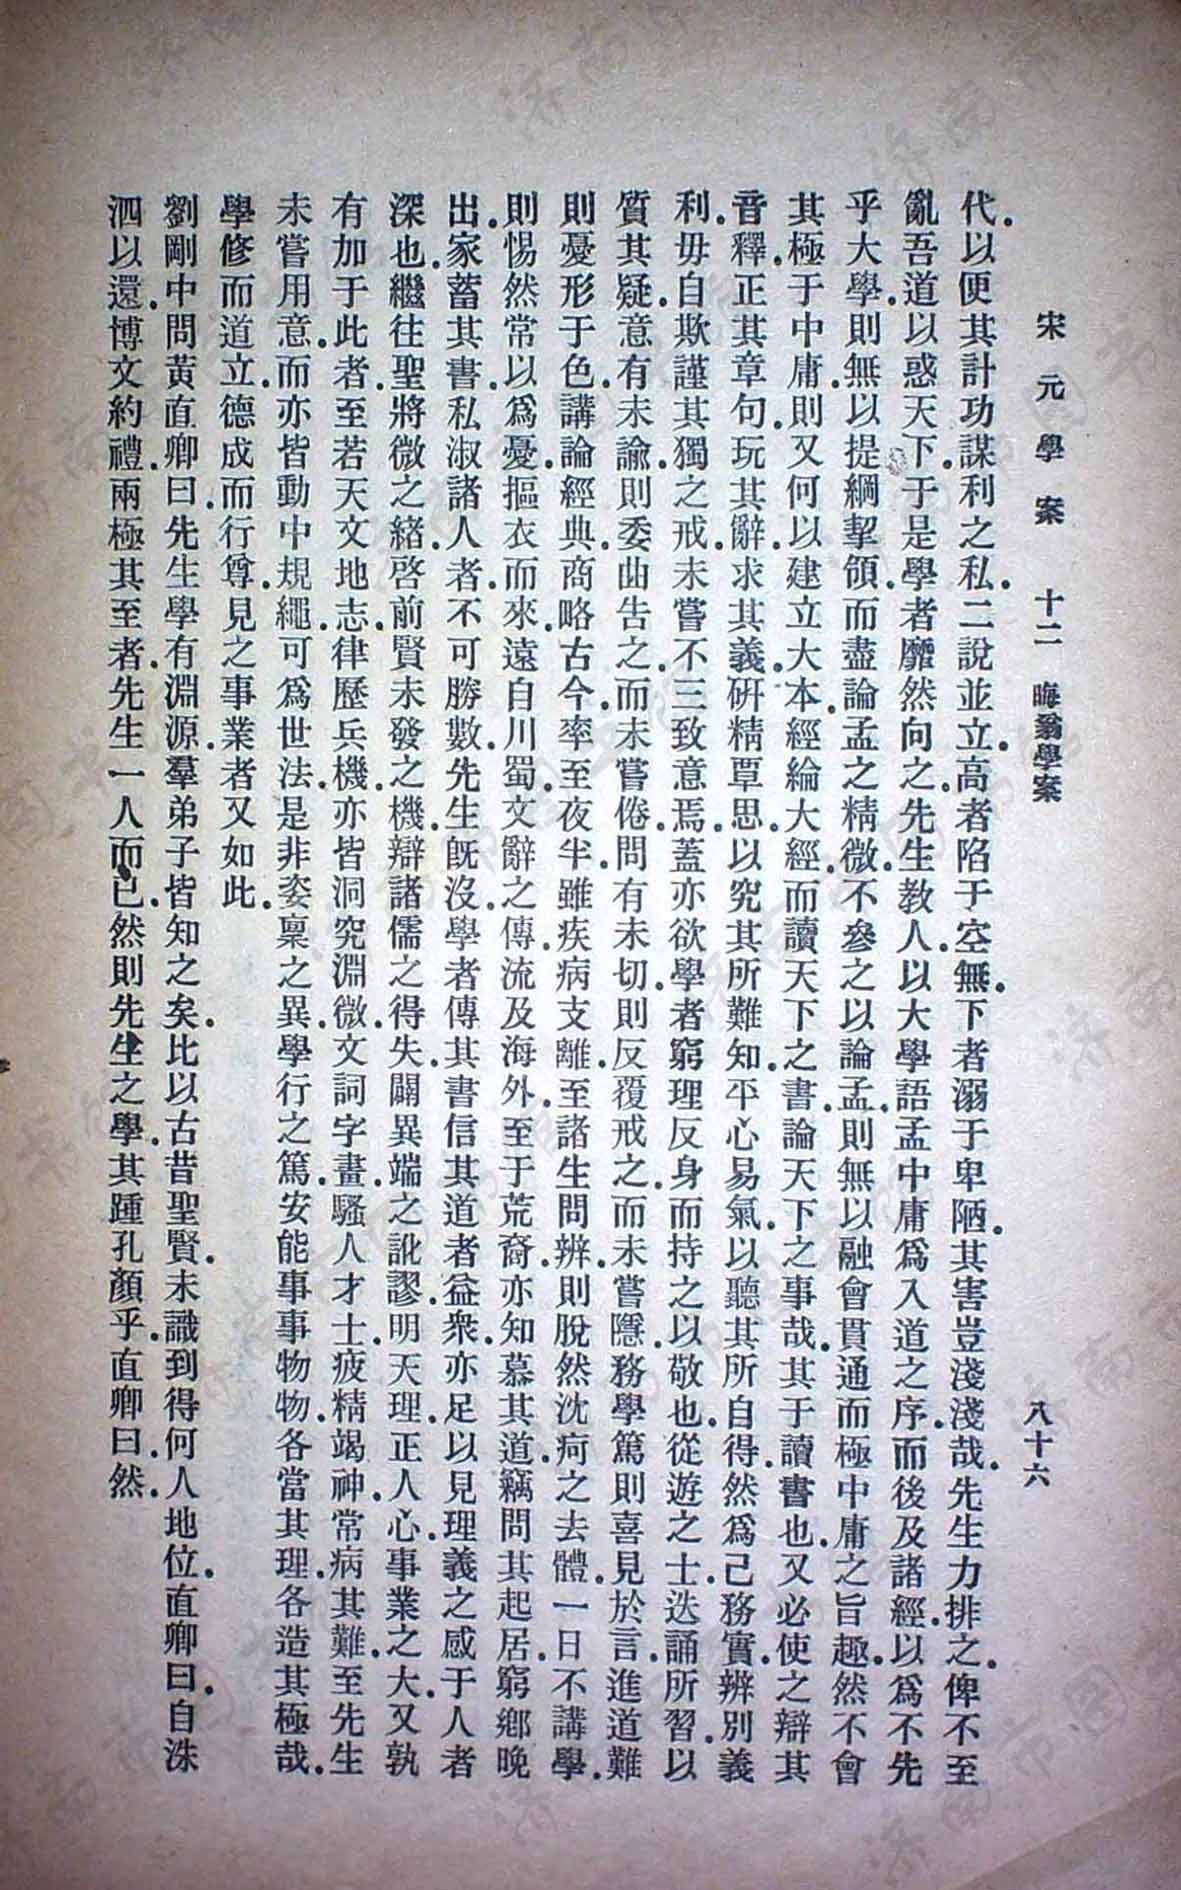 宋元學案　十二　晦翁學案　八十六
代.以便其計功謀利之私.二說並立.高者陷于空無.下者溺于卑陋.其害豈淺淺哉.先生力排之.俾不至
亂吾道以惑天下.于是學者靡然向之.先生教人.以大學語孟中庸爲入道之序.而後及諸經.以爲不先
乎大學.則無以提綱挈領.而盡論孟之精微.不參之以論孟.則無以融會貫通而極中庸之旨趣.然不會
其極于中庸.則又何以建立大本.經綸大經.而讀天下之書.論天下之事哉.其于讀書也.又必使之辯其
音釋.正其章句.玩其辭.求其義.研精覃思.以究其所難知.平心易氣.以聽其所自得.然爲己務實.辨別義
利.毋自欺.謹其獨之戒.未嘗不三致意焉.蓋亦欲學者窮理反身而持之以敬也.從遊之士.迭誦所習.以
質其疑.意有未諭.則委曲告之.而未嘗倦.問有未切.則反覆戒之.而未嘗隱.務學篤則喜見於言.進道難
則憂形于色.講論經典.商略古今.率至夜半.雖疾病支離.至諸生問辨.則脫然沈疴之去體.一日不講學.
則惕然常以爲憂.摳衣而來.遠自川蜀.文辭之傳.流及海外.至于荒裔.亦知慕其道.竊問其起居.窮鄉晚
出.家蓄其書.私淑諸人者.不可勝數.先生旣沒.學者傳其書信其道者益衆.亦足以見理義之感于人者
深也.繼往聖將微之緒.啓前賢未發之機.辯諸儒之得失.闢異端之訛謬.明天理.正人心.事業之大.又孰
有加于此者.至若天文地志.律歷兵機.亦皆洞究淵微.文詞字畫.騷人才士.疲精竭神.常病其難.至先生
未嘗用意.而亦皆動中規繩.可爲世法.是非姿稟之異.學行之篤.安能事事物物.各當其理.各造其極哉.
學修而道立.德成而行尊.見之事業者又如此.
劉剛中問黃直卿曰.先生學有淵源.羣弟子皆知之矣.比以古昔聖賢.未識到得何人地位.直卿曰.自洙
泗以還.博文約禮.兩極其至者.先生一人而已.然則先生之學.其踵孔顏乎.直卿曰.然.